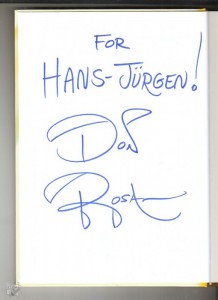 FOR
HANS-JÜRGEN!
Don
Rosa